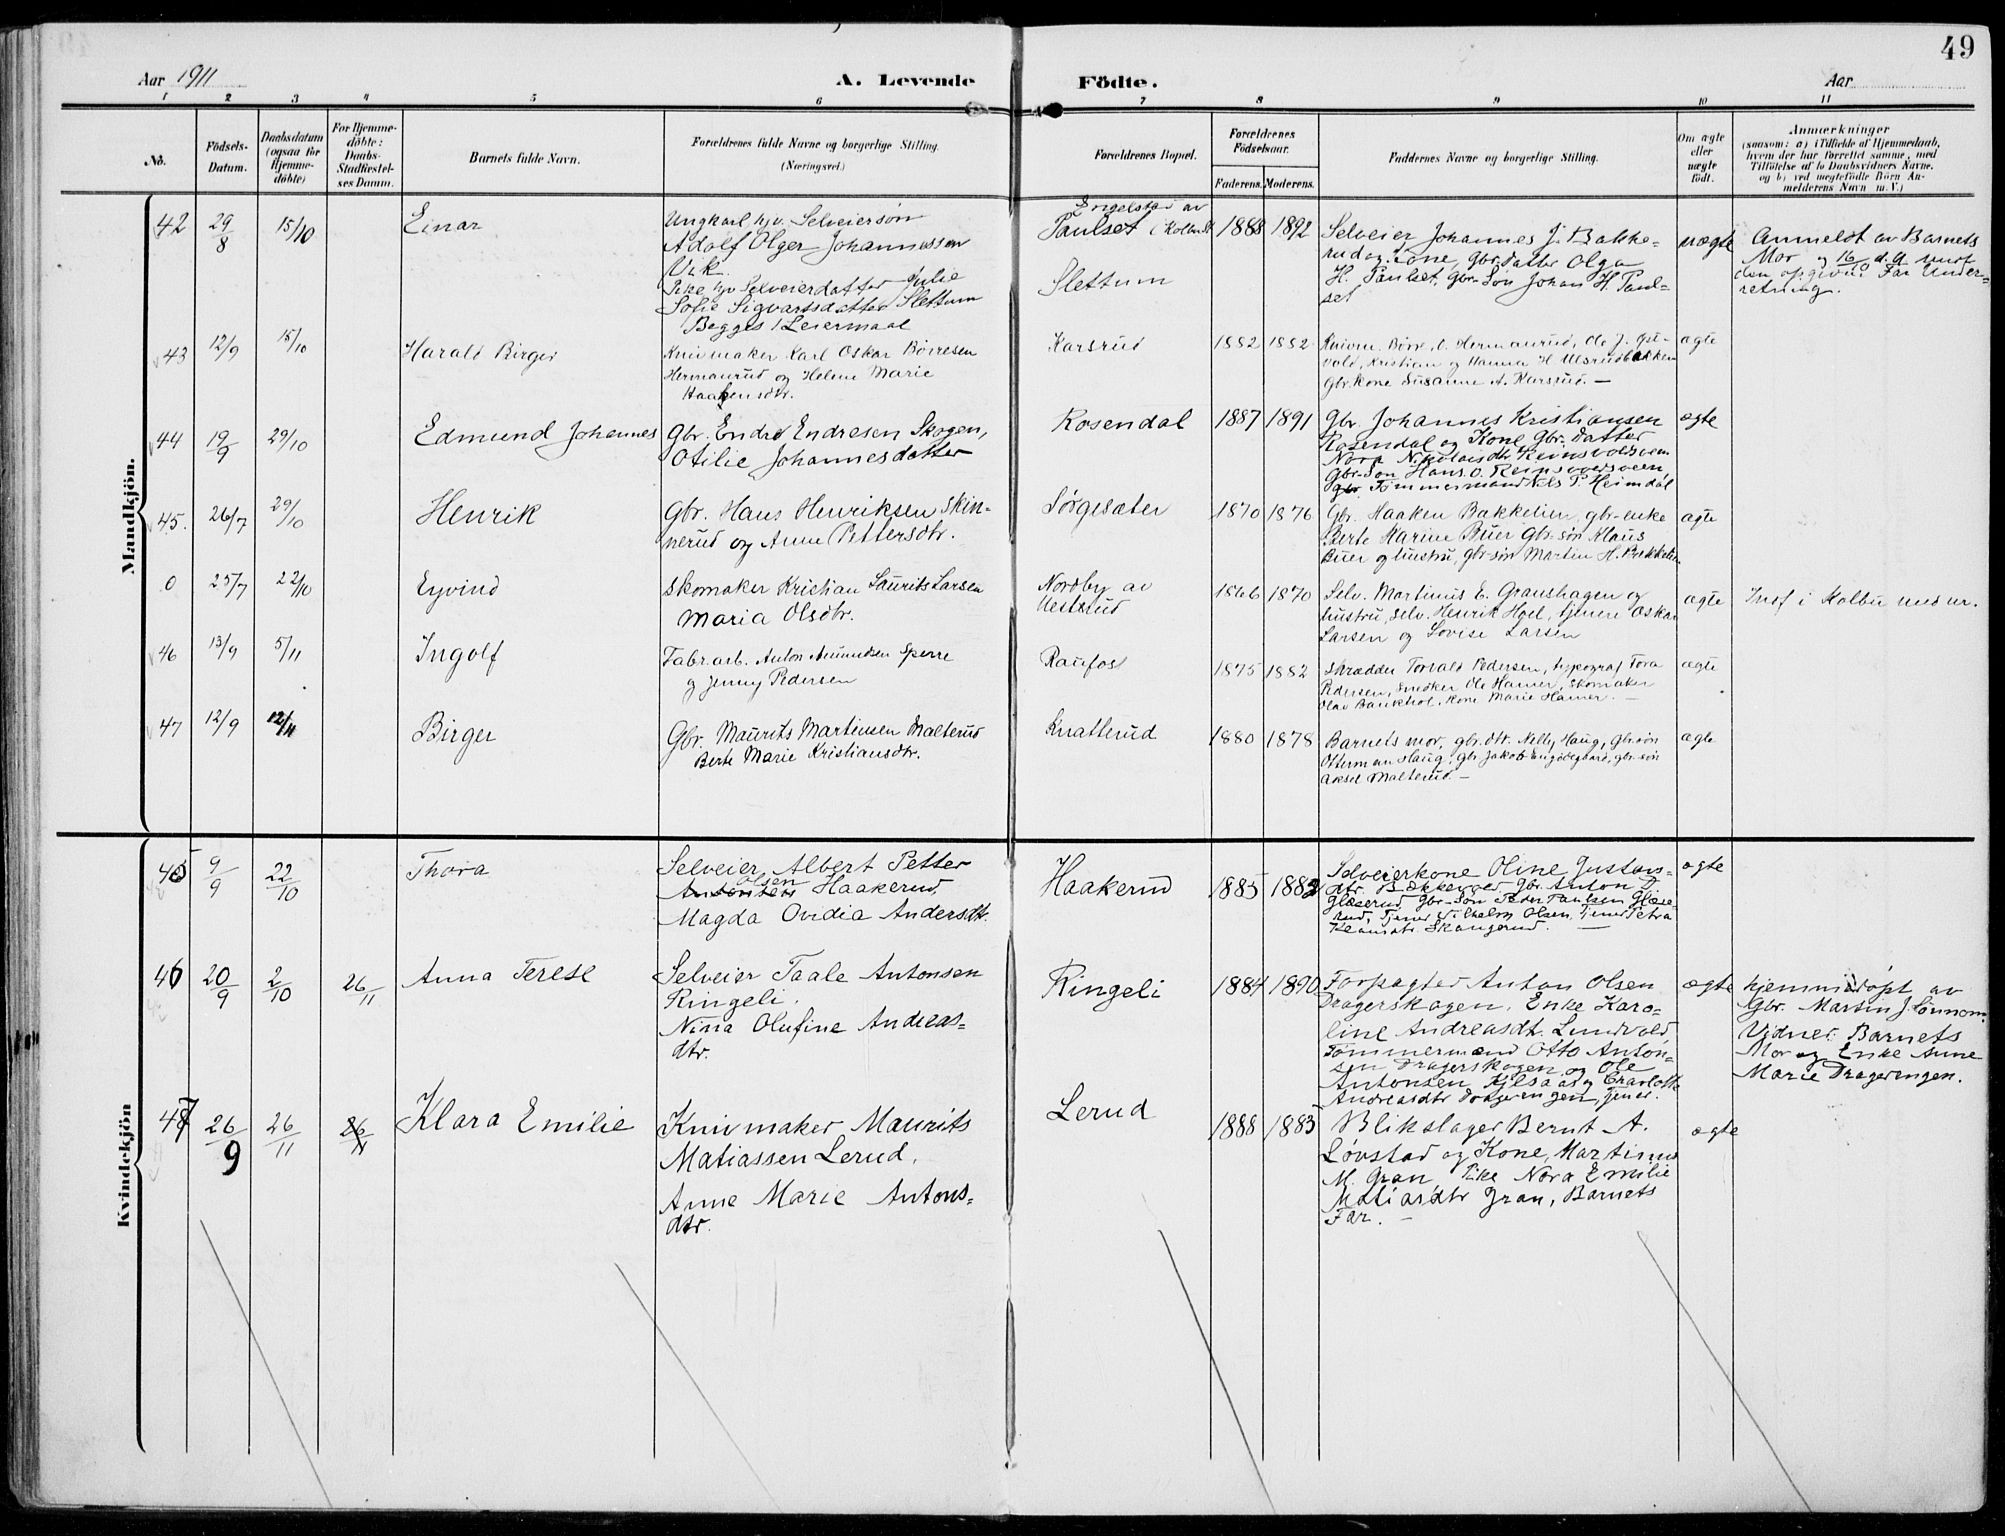 49
Aar 1911
A. Levende Födte.
Aar
1 2 3 4 5 6 7 8 9 10 11
No.
Födsels-
Datum.
Daabsdatum
(ogsaa for
Hjemme-
döbte)
For Hjemme-
döbte:
Daabs-
Stadfæstel-
ses Datum.
Barnets fulde Navn.
Forældrenes fulde Navne og borgerlige Stilling.
(Næringsvei.)
Forældrenes Bopæl.
Forældrenes
Födselsaar.
Faderens. Moderens.
Faddernes Navne og borgerlige Stilling.
Om ægte
eller
uægte
födt.
Anmærkninger
(saasom: a) i Tilfælde af Hjemmedaab,
hvem der har forrettet samme, med
Tilföielse af to Daabsvidners Navne,
og b) ved uægtefödte Börn An-
melderens Navn m. V.)
Mandkjön.
42 29/8 15/10 Einar
Ungkarl hjv. Selveiersön
Adolf Olger Johannessen
Vik.
Pike hjv Selveierdatter Julie
Sofie Sigvartsdatter Slettum
Begges 1 Leiermaal
Engelstad av
Paulset i Kolbu
Slettum
1888 1892
Selveier Johannes J. Bakke-
rud og Kone, gbr. datter Olga
H. Paulset, gbr-Søn Johan H. Paul-
set
uægte
Anmeldt av Barnets
Mor og 16/10 d. a. mot
den opgivne Far Under-
retning.
43 12/9 15/10 Harald Birger
Knivmaker Karl Oskar Börresen
Hermanrud og Helene Marie
Haakensdtr.
Karsrud
1882 1882
Knivm. Börre O. Hermanrud, Ole J. Øst-
vold, Kristian og Hanna H Ulsrudbakken
Gbr. kone Susanne A. Karsrud. —
ægte
44 19/9 29/10 Edmund Johannes
Gbr. Endre Endresen Skogen,
Otilie Johannesdatter
Rosendal
1887 1891
Gbr. Johannes Kristiansen
Rosendal og Kone Gbr. datter
Nora Nikolaisdtr Reinsvoldsveen
Gbr-Søn Hans O. Reinsvoldsveen,
Tømmermand Nils P. Heimdal
ægte
45. 26/7 29/10 Henrik
Gbr. Hans Henriksen Skin-
nerud og Anne Pettersdtr.
Sørgesæter
1870 1876
Gbr. Haaken Bakkelien, gbr-enke
Berte Karine Buer Gbr-søn Klaus
Buer og hustru, gbr-søn Martin H. Bakkelien
ægte
0 25/7 22/10 Eyvind
Skomaker Kristian Laurits Larsen
Maria Olsdtr.
Nordby av
Vestrud
1866 1870
Selv. Martinus E. Granshagen og
hustru, Selv. Henrik Hoel, tjener Oskar
Larsen og Lovise Larsen
ægte
Indf i Kolbu med nr.
46 13/9 5/11 Ingolf
Fabr.arb. Anton Amundsen Sperre
og Jenny Pedersen
Raufos
1875 1882
Skrædder Torvald Pedersen, typograf Tora
Pedersen, Snedker Ole Hamer, Skomaker
Olav Bankhol, Kone Marie Hamer. —
ægte
47 12/9 12/11 Birger
Gbr. Maurits Martinsen Malterud
Berte Marie Kristiansdtr.
Knatterud
1880 1878
Barnets mor, gbr.dtr. Nelly Haug, gbr.søn
Otterman Haug, gbr Jakob Engødegaard, gbr-søn
Aksel Malterud. —
ægte
Kvindekjön
45 9/9 22/10 Thora
Selveier Albert Petter
Olsen Haakerud,
Magda Ovidia Andersdtr.
Haakerud
1885 1882
Selveierkone Oline Gustavs-
dtr. Bækkevold, Gbr. Anton D.
Glæserud, Gbr-Søn Peder Paulsen Glæse-
rud, Tjener Vilhelm Olsen, Tjener Petra
Skangerud. —
ægte
46 20/9 2/10 26/11 Anna Terese
Selveier Taale Antonsen
Ringeli.
Nina Olufine Andreas-
dtr.
Ringeli
1884 1890
Forpagter Anton Olsen
Dragerskogen, Enke Karo-
line Andreasdt. Lundvold,
Tømmermænd Otto Anton-
sen Dragerskogen og Ole
Antonsen Kjelsaas og Charlotte
Andreasdtr Dragerengen, tjener.
ægte
hjemmedøpt av
Gbr. Martin J. Lønnom.
Vidner: Barnets
Mor og Enke Anne
Marie Dragerengen.
47 26/9 26/11 Klara Emilie
Knivmaker Maurits
Matiassen Lerud,
Anne Marie Antons-
dtr.
Lerud
1888 1885
Blikslager Bernt A.
Løvstad og Kone, Martinus
M. Gran, Pike Nora Emilie
Matiasdtr Gran, Barnets
Far. —
ægte